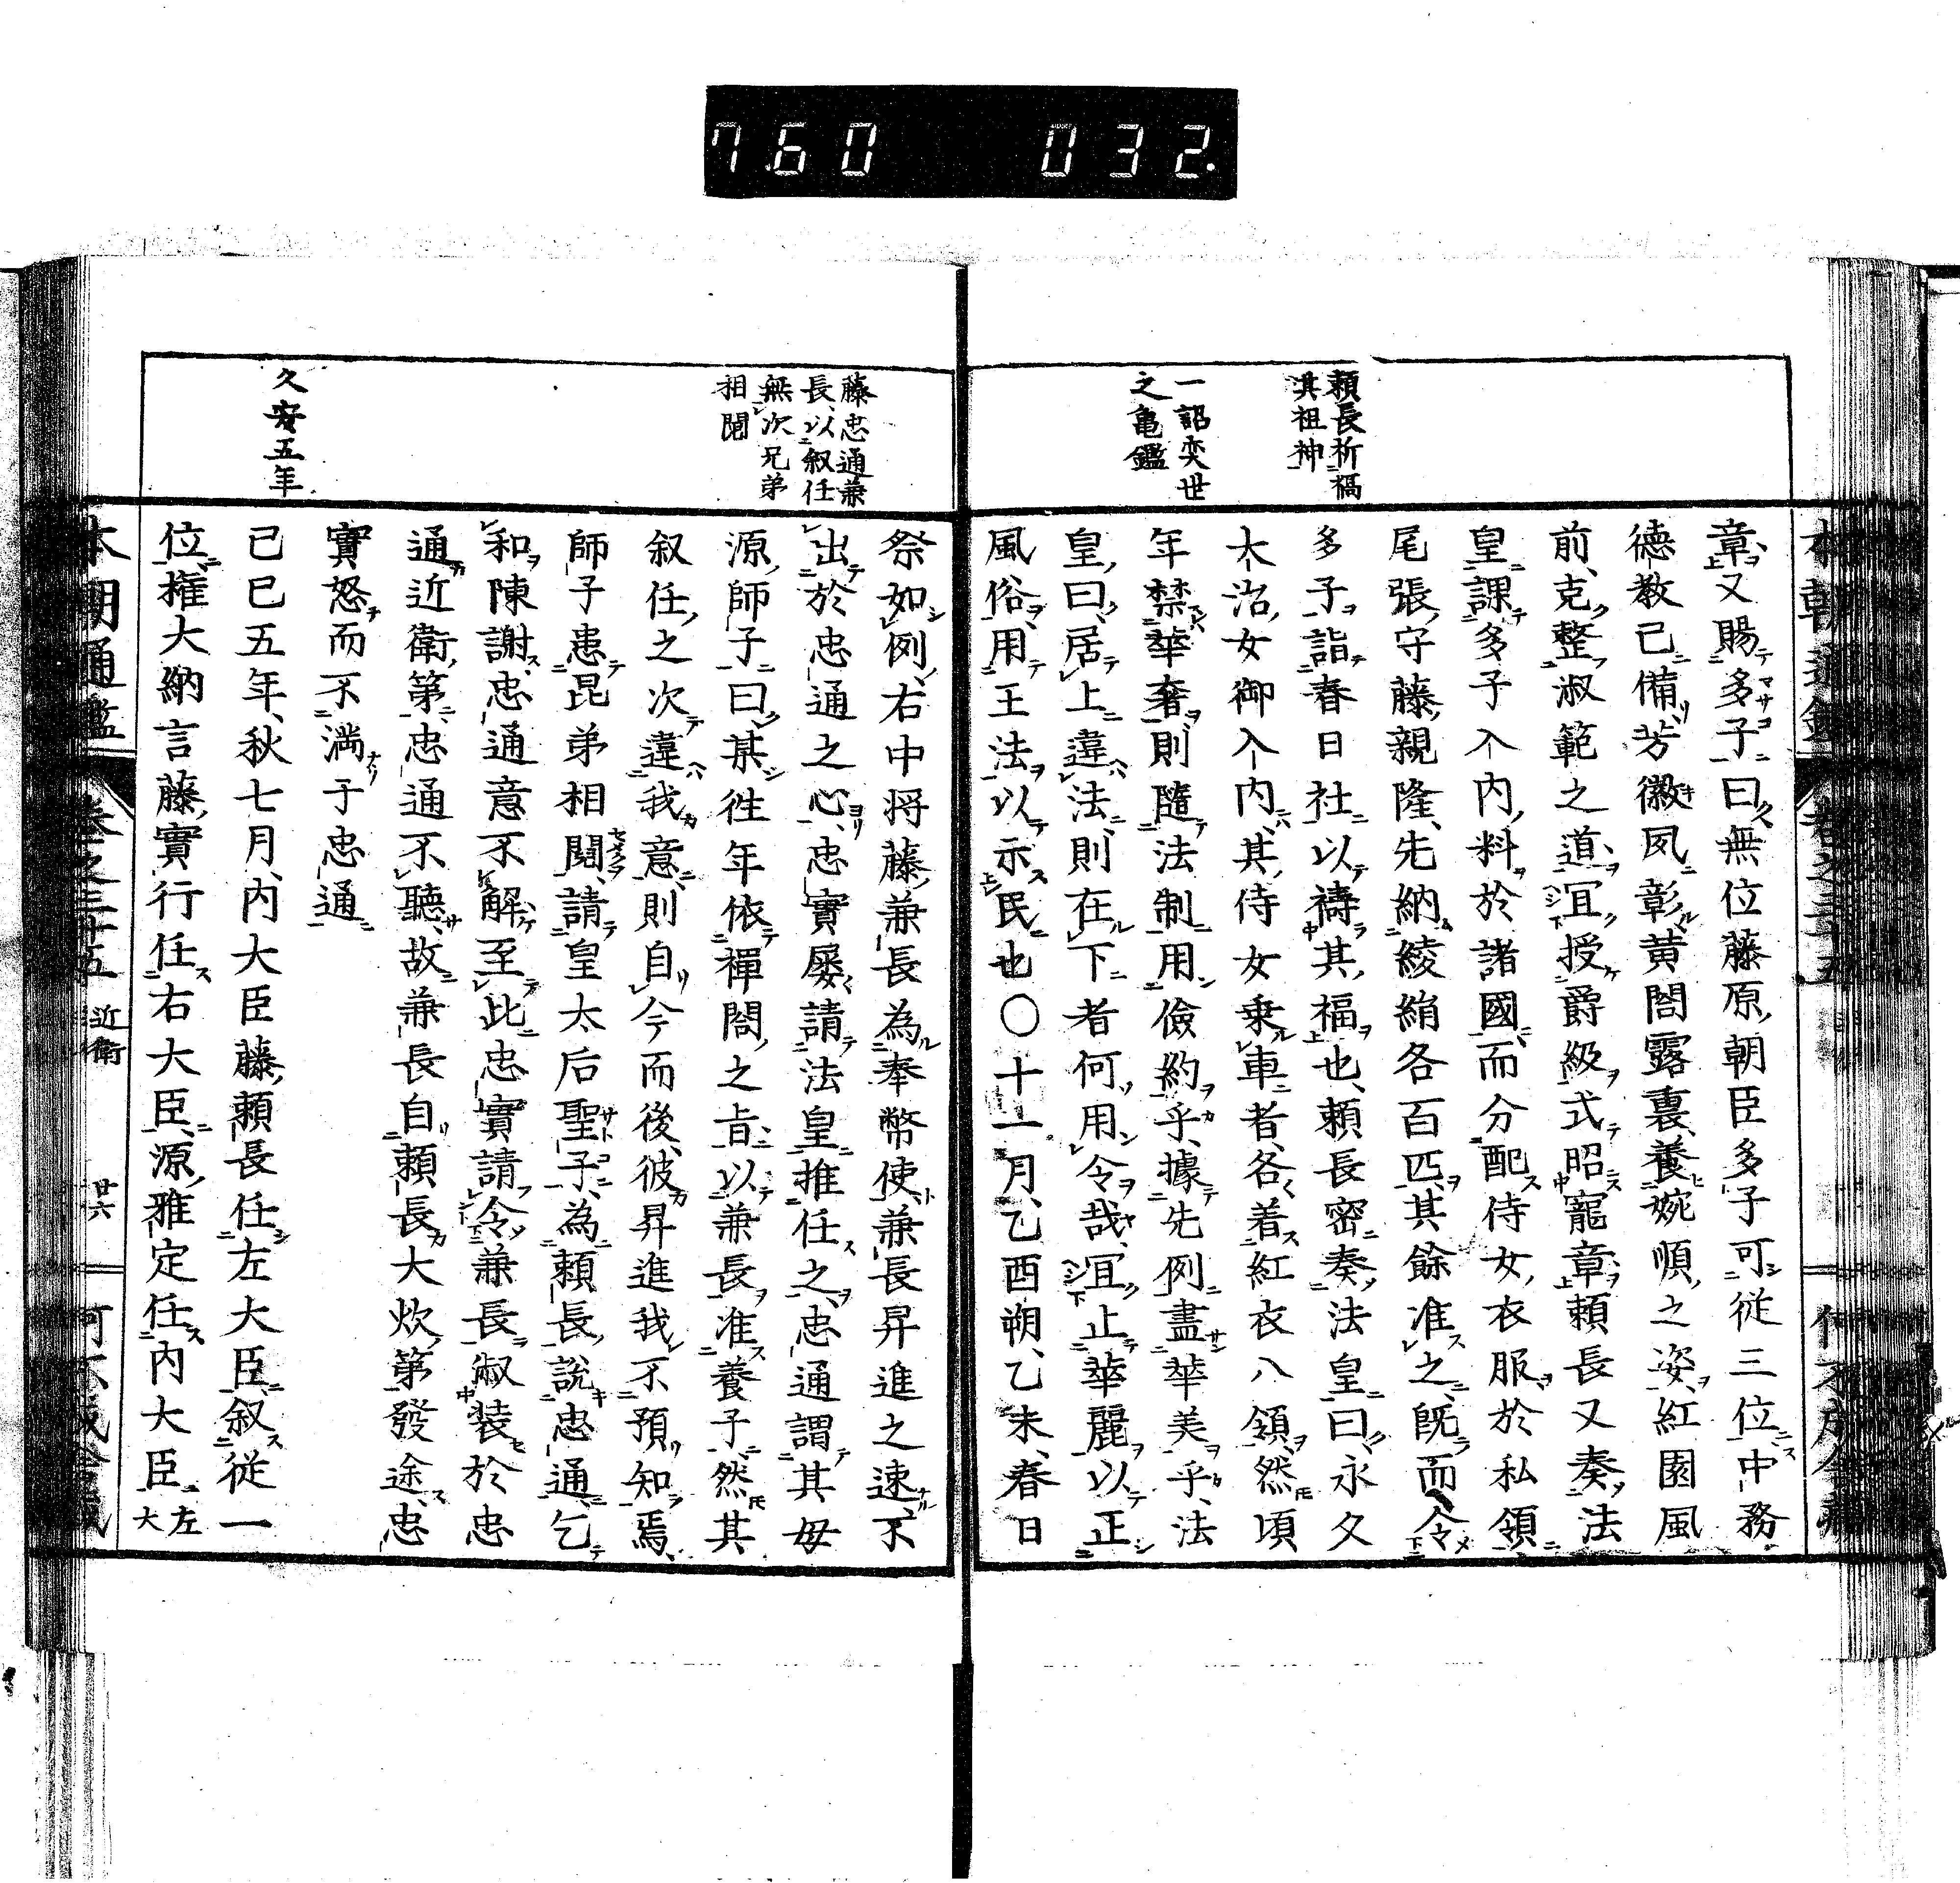 760 032.
頼長祈福
其祖神
一詔奕世
之亀鑑
章又賜多子曰無位藤原朝臣多子可従三位中務
徳教已備芳徽夙彰黄閤露裏養婉順之姿紅園風
前克整淑範之道冝授爵級式昭寵章頼長又奏法
皇課多子入内料於諸國而分配侍女衣服於私領
尾張守藤親隆先納綾絹各百匹其餘准之既而令
多子詣春日社以禱其福也頼長密奏法皇曰永久
大治女御入内其侍女乗車者各着紅衣八領然頃
年禁華奢則隨法制用儉約乎據先例盡華美乎法
皇曰居上違法則在下者何用令哉冝止華麗以正
風俗用王法以示民也〇十一月乙酉朔乙未春日
藤忠通兼
長以叙任
無次兄弟
相鬩
久安五年
祭如例右中将藤兼長為奉幣使兼長昇進之速不
出於忠通之心忠實屡請法皇推任之忠通謂其母
源師子曰某徃年依禪閤之旨以兼長准養子然其
叙任之次違我意則自今而後彼昇進我不預知焉
師子患昆弟相鬩請皇太后聖子為頼長説忠通乞
和陳謝忠通意不解至此忠實請令兼長淑装於忠
通近衛第忠通不聽故兼長自頼長大炊第發途忠
實怒而不満于忠通
己巳五年秋七月内大臣藤頼長任左大臣叙従一
位權大納言藤實行任右大臣源雅定任内大臣左
大
本朝通鑑 巻之三十五 近衛 廿六